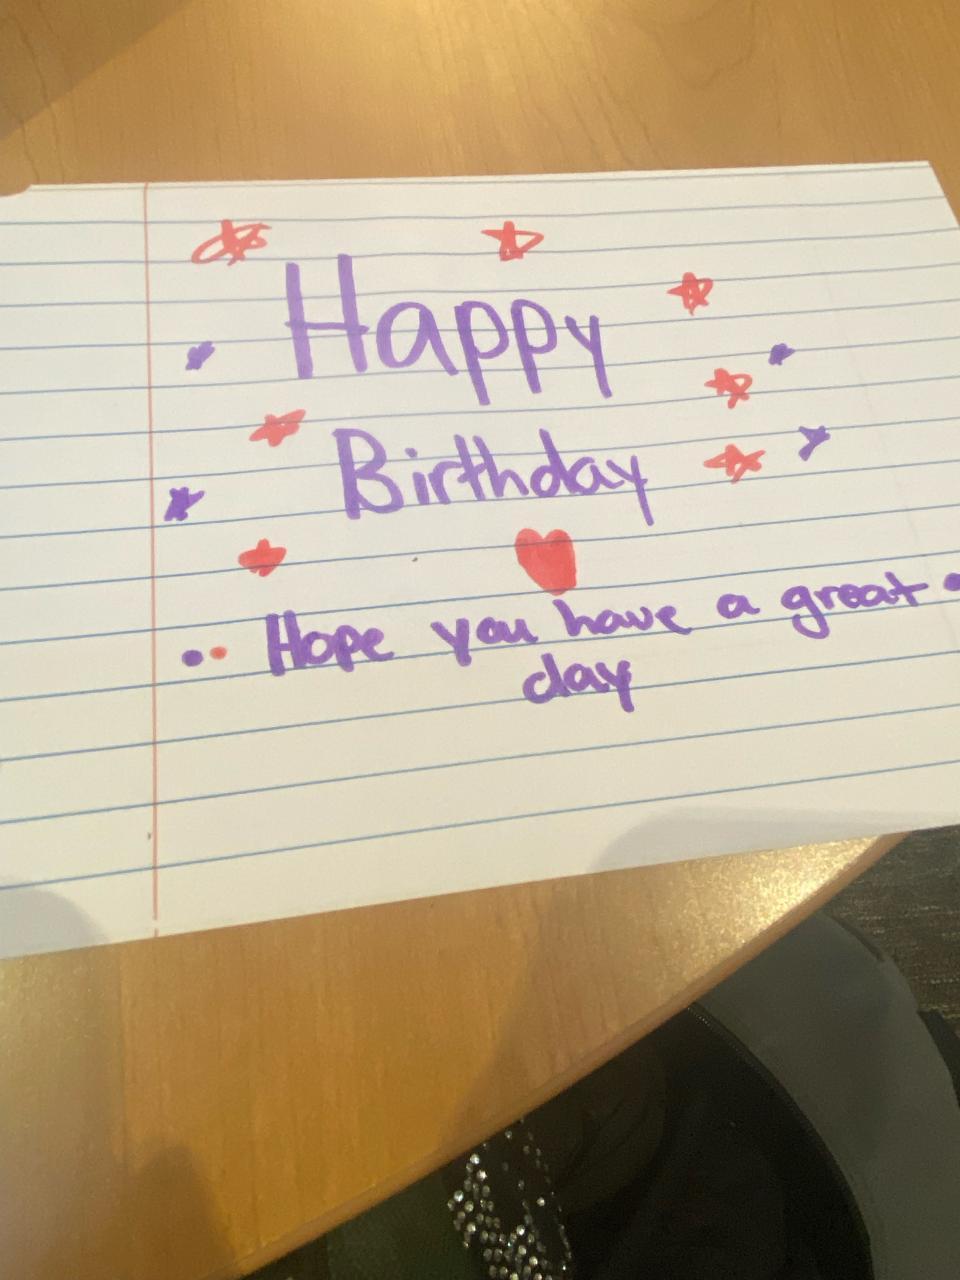 Happy
Birthday
Hope you have a great
day